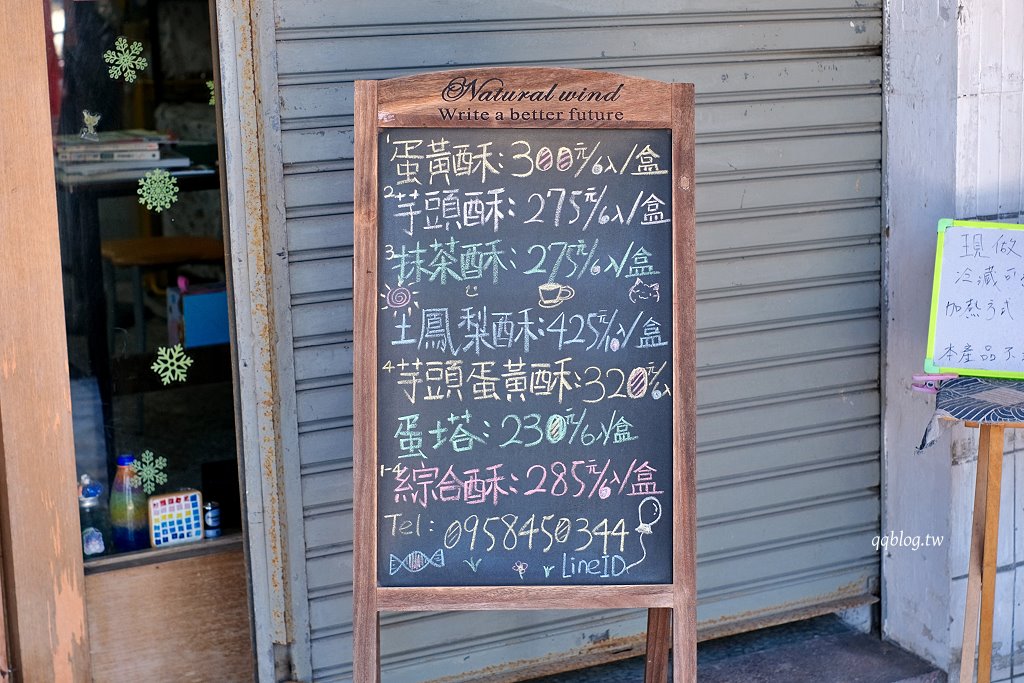 Natural wind
Write a better future
1 蛋黃酥:300元/6入/盒
2 芋頭酥:275元/6入/盒
3 抹茶酥:275元/6入/盒
土鳳梨酥:425元/6入/盒
4 芋頭蛋黃酥:320元/6入
蛋塔:230元/6入/盒
1-4 綜合酥:285元/6入/盒
Tel: 0958450344
LineID
現做
冷藏可
加熱方式
本產品不
qqblog.tw